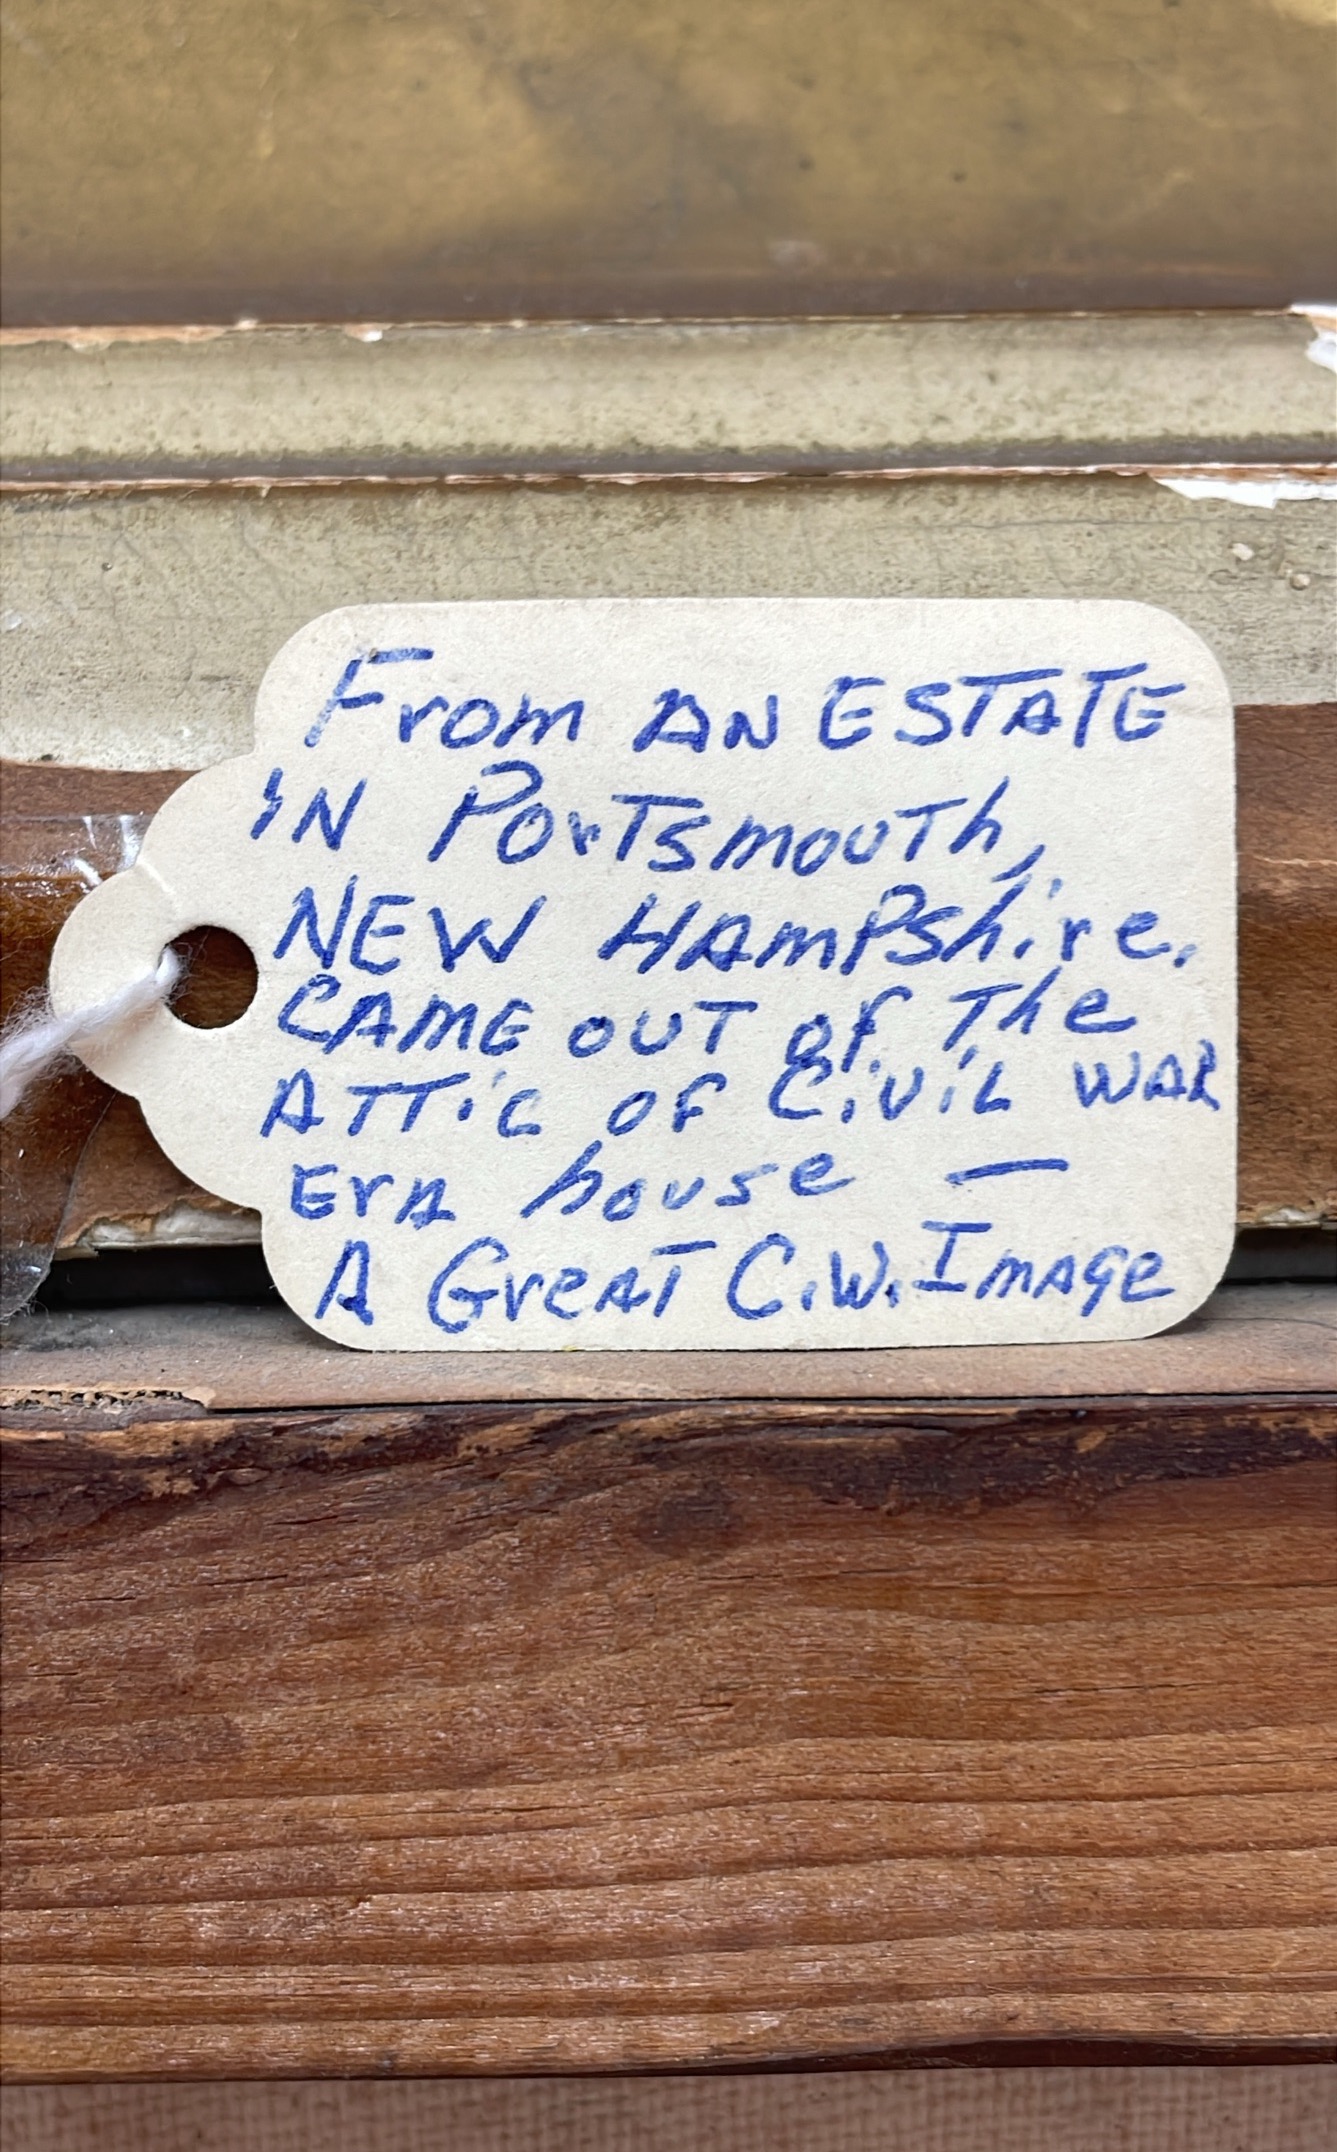 From AN ESTATE
IN PorTsmouTh,
NEW HAMPShire.
CAME OUT of The
ATTic of CiviL WAR
ErA house —
A GreAT C.W. ImAge